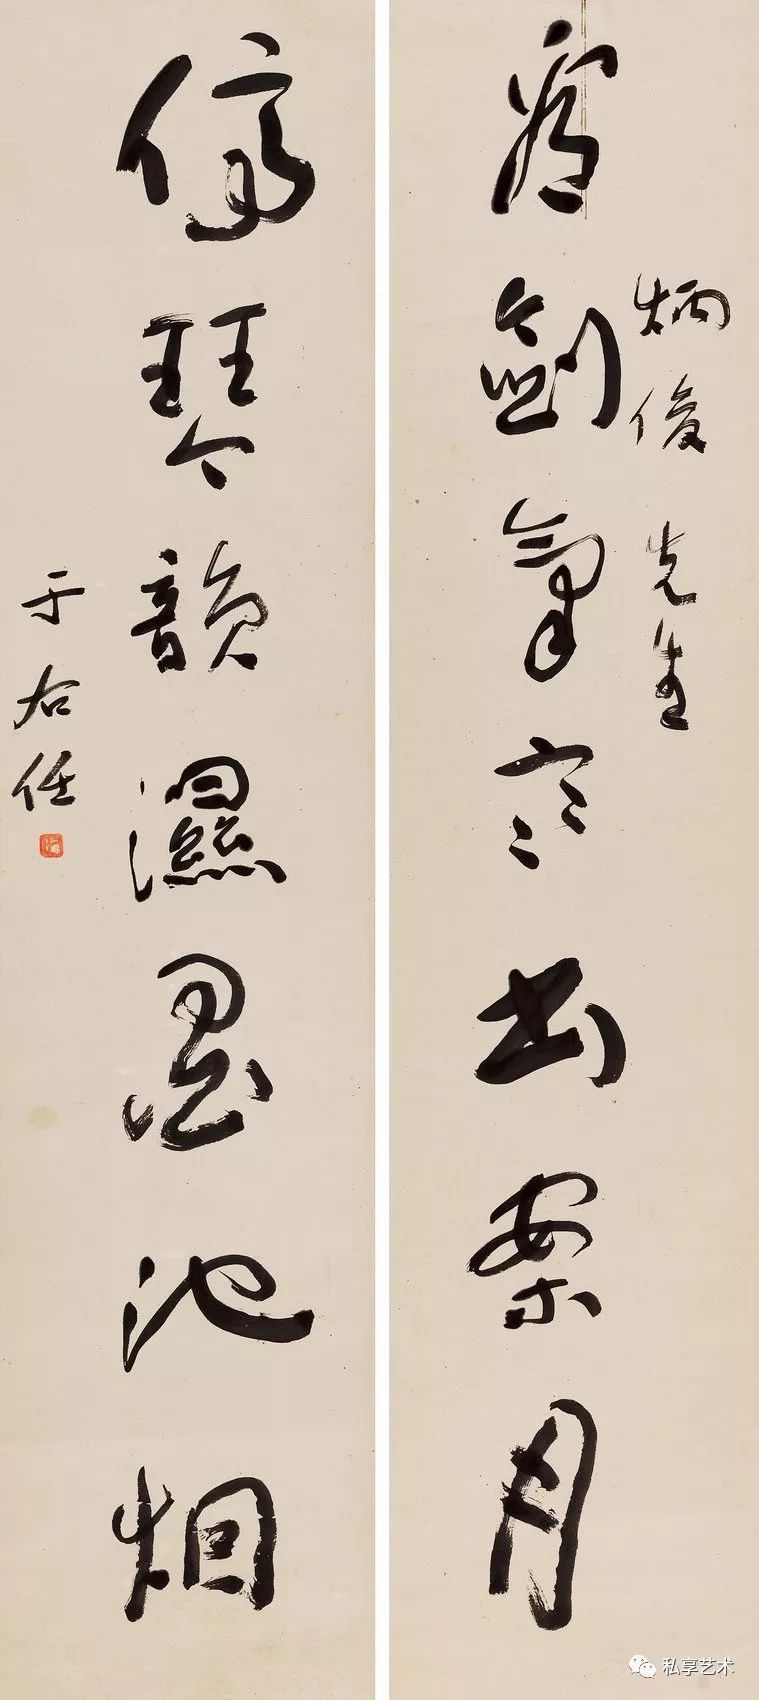 炳俊先生
看劍氣寒書案月
停琴韻濕墨池烟
于右任
私享艺术